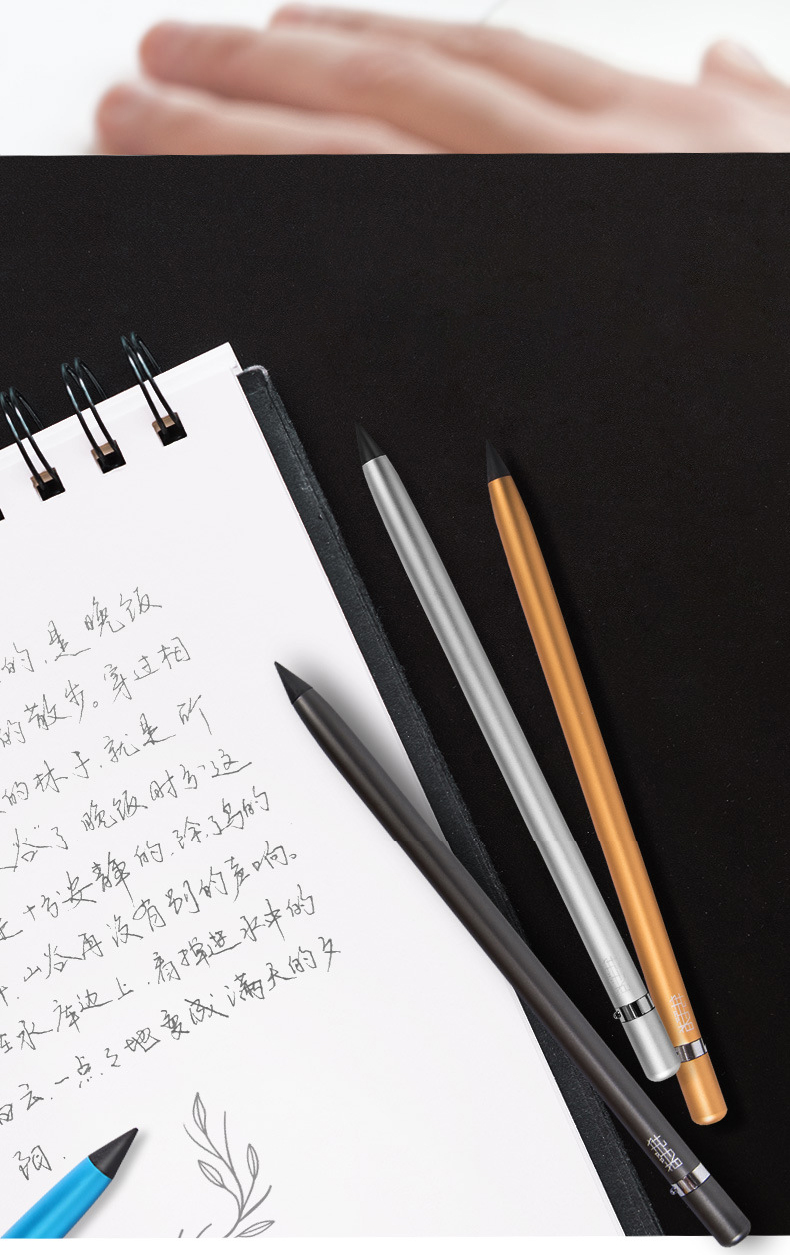 的,是晚饭
的散步。穿过相
的林子,就是所
谷了晚饭时分这
十分安静的,除了鸟的
,山谷再没有别的声响。
在水库边上,看掉进水中的
白云,一点点地变成满天的夕
阳.